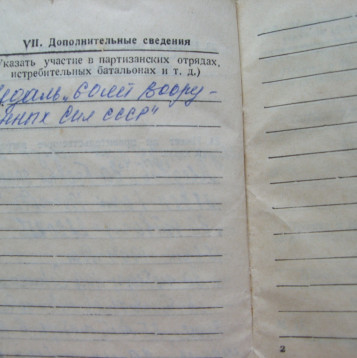 VII. Дополнительные сведения
(Указать участие в партизанских отрядах,
истребительных батальонах и т. д.)
едаль „60 лет воору-
нных сил СССР"
2